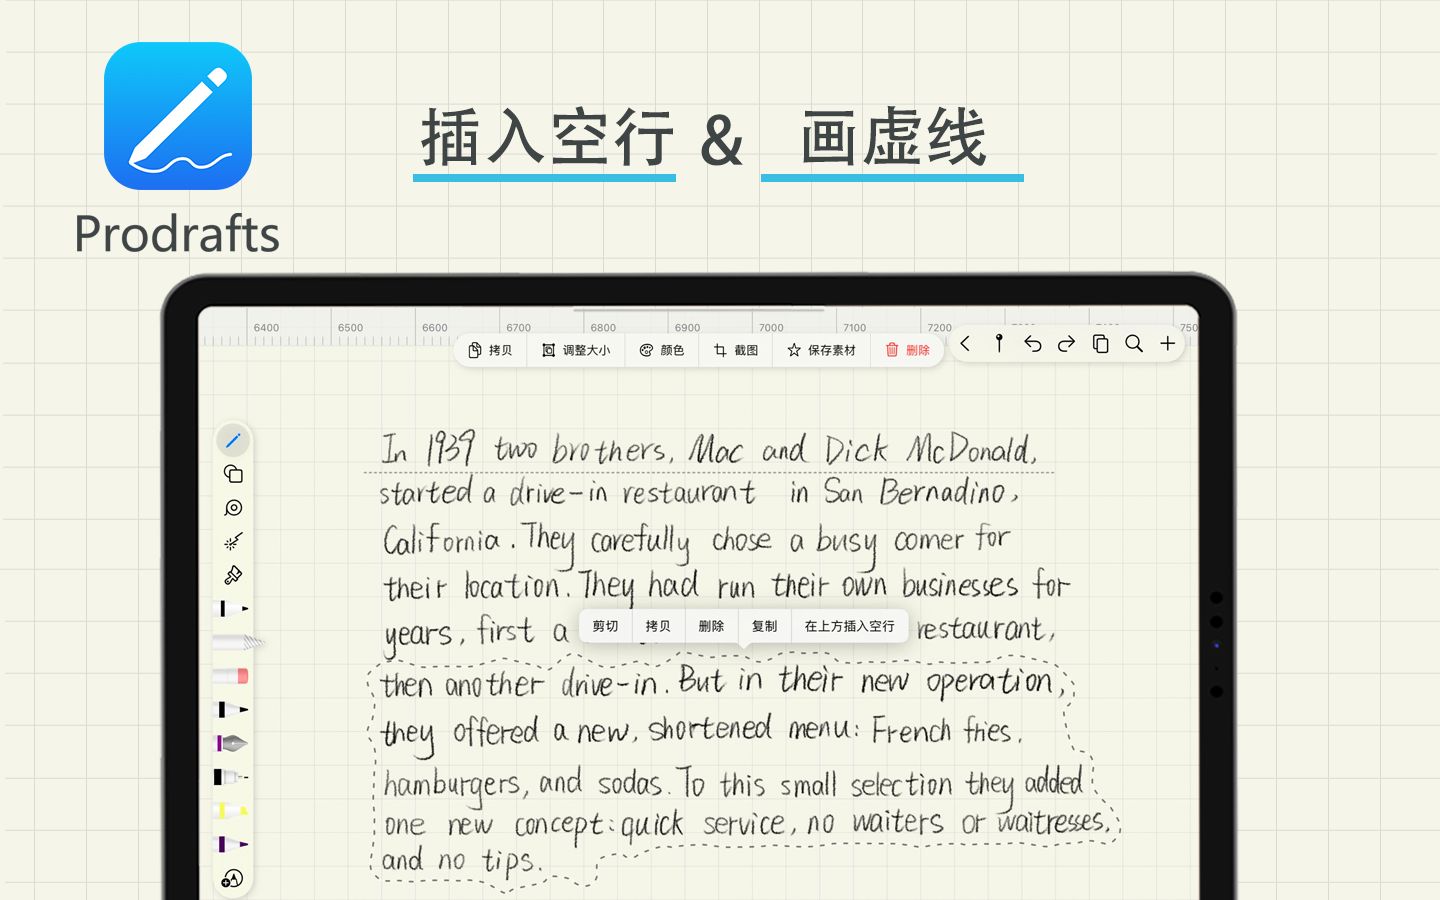 插入空行 & 画虚线
Prodrafts
6400 6500 6600 6700 6800 6900 7000 7100 7200
拷贝 调整大小 颜色 截图 保存素材 删除
In 1939 two brothers, Mac and Dick McDonald,
started a drive-in restaurant in San Bernadino,
California. They carefully chose a busy comer for
their location. They had run their own businesses for
years, first a restaurant,
剪切 拷贝 删除 复制 在上方插入空行
then another drive-in. But in their new operation,
they offered a new, shortened menu: French fries.
hamburgers, and sodas. To this small selection they added
one new concept: quick service, no waiters or waitresses,
and no tips.